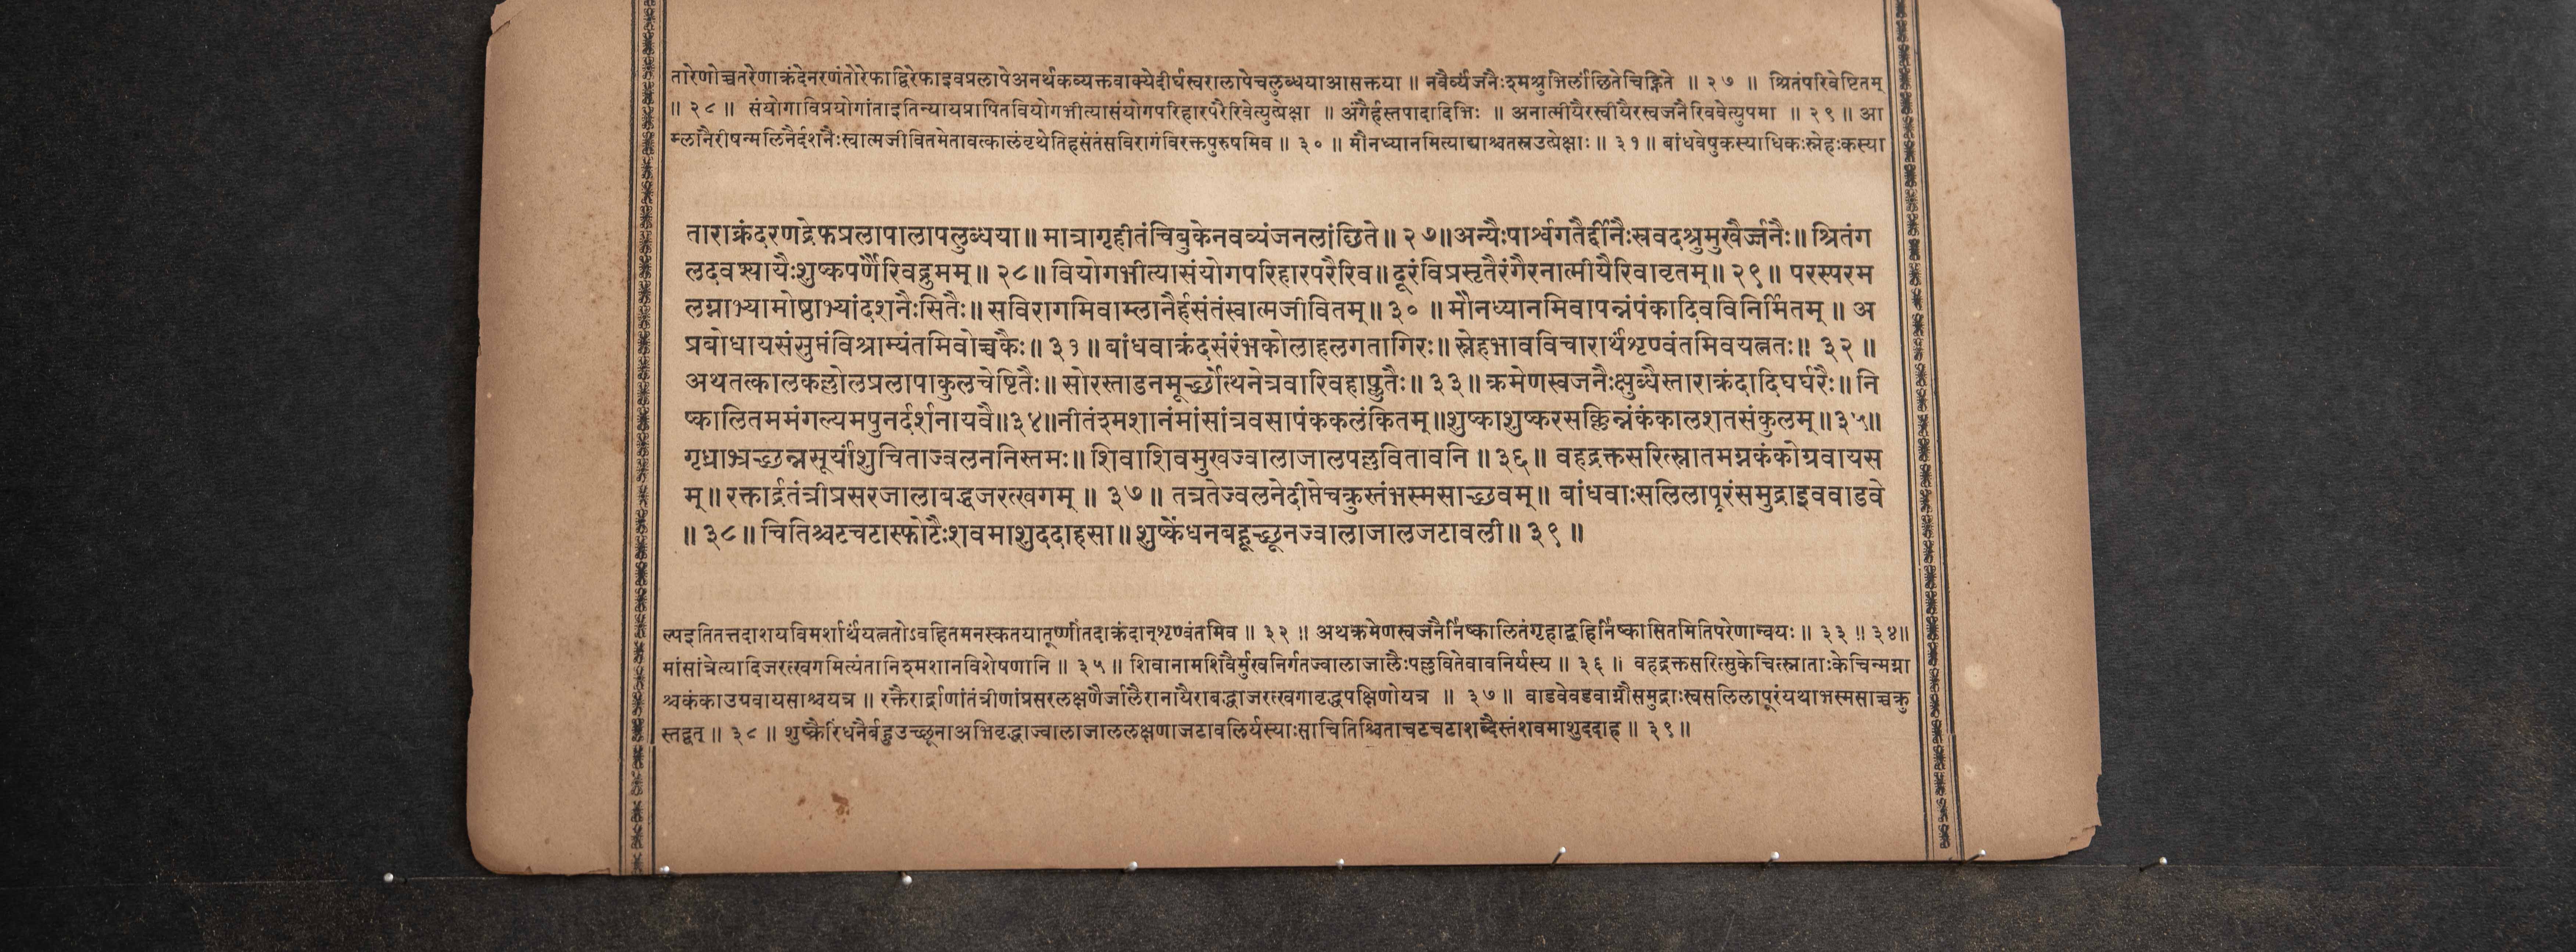 तारेणोच्चतरेणाक्रंदेनरणंतोरेफाद्विरेफाइवप्रलापेअनर्थकव्यक्तवाक्येदीर्घस्वरालापेचलुब्धयाआसक्तया ॥ नवैर्व्यंजनैःश्मश्रुभिर्लांछितेचिह्निते ॥ २७ ॥ श्रितंपरिवेष्टितम्
॥ २८ ॥ संयोगाविप्रयोगांताइतिन्यायप्रापितवियोगभीत्यासंयोगपरिहारपरैरिवेत्युत्प्रेक्षा ॥ अंगैर्हस्तपादादिभिः ॥ अनात्मीयैरस्वीयैरस्वजनैरिववेत्युपमा ॥ २९ ॥ आ
म्लानैरीषन्मलिनैर्दशनैःस्वात्मजीवितमेतावत्कालंवृथेतिहसंतंसविरागंविरक्तपुरुषमिव ॥ ३० ॥ मौनध्यानमित्याद्याश्चतस्रउत्प्रेक्षाः ॥ ३१ ॥ बांधवेषुकस्याधिकःस्नेहःकस्या
ताराक्रंदरणद्रेफप्रलापालापलुब्धया॥ मात्रागृहीतंचिबुकेनवव्यंजनलांछिते॥ २७॥अन्यैःपार्श्वगतैर्द्दीनैःस्रवदश्रुमुखैर्ज्जनैः॥ श्रितंग
लदवश्यायैःशुष्कपर्णैरिवद्रुमम्॥ २८॥ वियोगभीत्यासंयोगपरिहारपरैरिव॥ दूरंविप्रसृतैरंगैरनात्मीयैरिवावृतम्॥ २९॥ परस्परम
लग्नाभ्यामोष्ठाभ्यांदशनैःसितैः॥ सविरागमिवाम्लानैर्हसंतंस्वात्मजीवितम्॥ ३० ॥ मौनध्यानमिवापन्नंपंकादिवविनिर्मितम् ॥ अ
प्रबोधायसंसुप्तंविश्राम्यंतमिवोच्चकैः॥ ३१ ॥ बांधवाक्रंदसंरंभकोलाहलगतागिरः॥ स्नेहभावविचारार्थंशृण्वंतमिवयत्नतः॥ ३२ ॥
अथतत्कालकल्लोलप्रलापाकुलचेष्टितैः॥ सोरस्ताडनमूर्च्छोत्थनेत्रवारिवहाप्लुतैः॥ ३३॥ क्रमेणस्वजनैःक्षुब्धैस्ताराक्रंदादिघर्घरैः॥ नि
ष्कालितममंगल्यमपुनर्दर्शनायवै॥३४॥नीतंश्मशानंमांसांत्रवसापंककलंकितम्॥शुष्काशुष्करसक्लिन्नंकंकालशतसंकुलम्॥३५॥
गृध्राभ्रच्छन्नसूर्यांशुचिताज्वलननिस्तमः॥ शिवाशिवमुखज्वालाजालपल्लवितावनि ॥ ३६॥ वहद्रक्तसरित्स्नातमग्नकंकोग्रवायस
म्॥ रक्तार्द्रतंत्रीप्रसरजालाबद्धजरत्खगम् ॥ ३७॥ तत्रतेज्वलनेदीप्तेचक्रुस्तंभस्मसाच्छवम्॥ बांधवाःसलिलापूरंसमुद्राइववाडवे
॥ ३८॥ चितिश्चटचटास्फोटैःशवमाशुददाहसा॥ शुष्केंधनबहूच्छूनज्वालाजालजटावली॥ ३९॥
ल्पइतितत्तदाशयविमर्शार्थंयत्नतोऽवहितमनस्कतयातूष्णींतदाक्रंदान्शृण्वंतमिव ॥ ३२ ॥ अथक्रमेणस्वजनैर्निष्कालितंगृहाद्बहिर्निष्कासितमितिपरेणान्वयः ॥ ३३ ॥ ३४॥
मांसांत्रेत्यादिजरत्खगमित्यंतानिश्मशानविशेषणानि ॥ ३५ ॥ शिवानामशिवैर्मुखनिर्गतज्वालाजालैःपल्लवितेवावनिर्यस्य ॥ ३६ ॥ वहद्रक्तसरित्सुकेचित्स्नाताःकेचिन्मग्ना
श्चकंकाउग्रवायसाश्चयत्र ॥ रक्तैरार्द्राणांतंत्रीणांप्रसरलक्षणैर्जालैरानायैराबद्धाजरत्खगावृद्धपक्षिणोयत्र ॥ ३७ ॥ वाडवेवडवाग्नौसमुद्राःस्वसलिलापूरंयथाभस्मसाच्चक्रु
स्तद्वत् ॥ ३८ ॥ शुष्कैरिंधनैर्बहुउच्छूनाअभिवृद्धाज्वालाजाललक्षणाजटावलिर्यस्याःसाचितिश्चिताचटचटाशब्दैस्तंशवमाशुददाह ॥ ३९॥